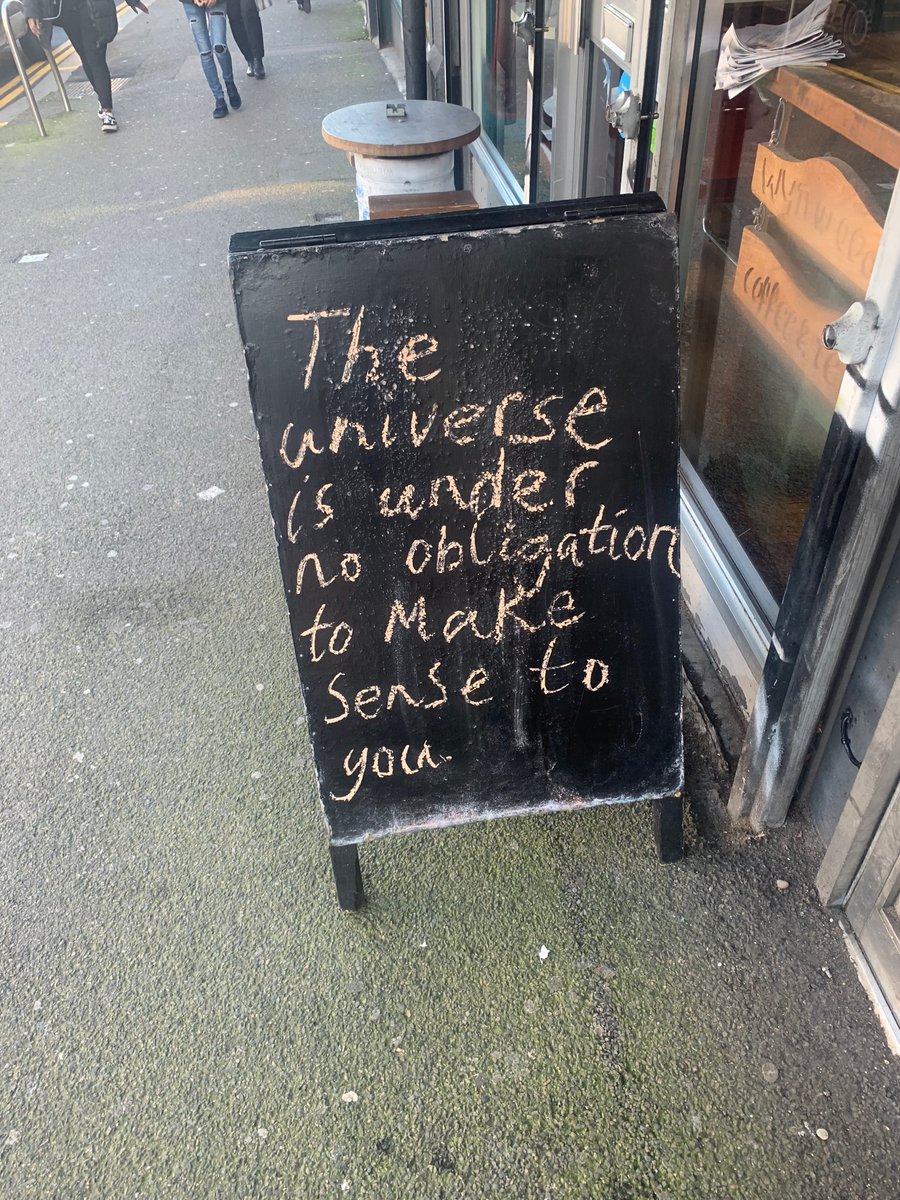 The
universe
is under
no obligation
to Make
sense to
you.